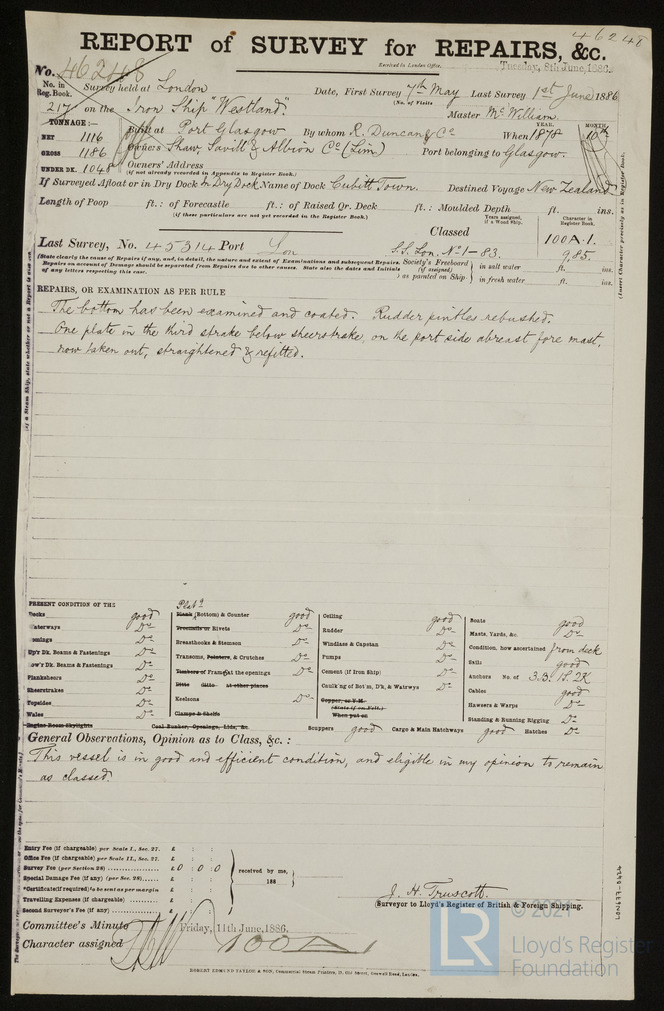 46248
REPORT of SURVEY for REPAIRS, &c.
Received in London Office, Tuesday, 8th June, 1886.
No. 46248
No. in Reg. Book. Survey held at London Date, First Survey 7th May Last Survey 1st June 1886
(No. of Visits
217 on the Iron Ship "Westland". Master McWilliam
TONNAGE:— YEAR. MONTH
NET 1116 Built at Port Glasgow By whom R. Duncan & Co When 1878 10th
GROSS 1186 Owners Shaw, Savill & Albion Co (Lim) Port belonging to Glasgow.
UNDER DK. 1048 Owners' Address
(if not already recorded in Appendix to Register Book.)
If Surveyed Afloat or in Dry Dock In Dry Dock Name of Dock Cubitt Town. Destined Voyage New Zealand
Length of Poop ft.: of Forecastle ft.: of Raised Qr. Deck ft.: Moulded Depth ft. ins.
(if these particulars are not yet recorded in the Register Book.)
Years assigned, if a Wood Ship. Character in Register Book.
Classed 100A.1.
Last Survey, No. 45314 Port Lon S.S. Lon. No 1-83. 9,85.
(State clearly the cause of Repairs if any, and, in detail, the nature and extent of Examinations and subsequent Repairs. Society's Freeboard in salt water ft. ins.
Repairs on account of Damage should be separated from Repairs due to other causes. State also the dates and Initials (if assigned)
of any letters respecting this case. as painted on Ship in fresh water ft. ins.
(Insert Character precisely as in Register Book.
REPAIRS, OR EXAMINATION AS PER RULE
The bottom has been examined and coated. Rudder pintles rebushed.
One plate in the third strake below sheerstrake, on the port side abreast fore mast,
now taken out, straightened & refitted.
PRESENT CONDITION OF THE
Decks good
Waterways Do
Up'r Dk. Beams & Fastenings Do
Low'r Dk. Beams & Fastenings Do
Planksheers Do
Sheerstrakes Do
Topsides Do
Wales Do
Engine Room Skylights
Platg
Plank (Bottom) & Counter good
Treenails or Rivets Do
Breasthooks & Stemson Do
Transoms, Pointers, & Crutches Do
Timbers of Frame at the openings Do
Ditto ditto at other places
Keelsons Do
Clamps & Shelfs
Coal Bunker, Openings, Lids, &c.
Ceiling good
Rudder Do
Windlass & Capstan Do
Pumps Do
Cement (if Iron Ship) Do
Caulk'ng of Bot'm, D'k, & Watrwys Do
Copper, or Y.M.
(State if on Felt.)
When put on
Scuppers good Cargo & Main Hatchways good Hatches Do
Boats good
Masts, Yards, &c. Do
Condition, how ascertained from deck
Sails good
Anchors No. of 3.B. 1S. 2K
Cables good
Hawsers & Warps Do
Standing & Running Rigging Do
General Observations, Opinion as to Class, &c. :
This vessel is in good and efficient condition, and eligible in my opinion to remain
as classed.
Entry Fee (if chargeable) per Scale I., Sec. 27. £ : :
Office Fee (if chargeable) per Scale II., Sec. 27. £ : :
Survey Fee (per Section 28) £ 0 : 0 : 0
Special Damage Fee (if any) (per Sec. 28) £ : :
*Certificate (if required) to be sent as per margin
Travelling Expenses (if chargeable) £ : :
Second Surveyor's Fee (if any) £ : :
received by me,
188
J. H. Truscott.
(Surveyor to Lloyd's Register of British & Foreign Shipping.
Committee's Minute Friday, 11th June, 1886.
Character assigned 100A1
ROBERT EDMUND TAYLOR & SON, Commercial Steam Printers, 19, Old Street, Goswell Road, London.
LON677-0424
© 2021
LR
Lloyd's Register
Foundation